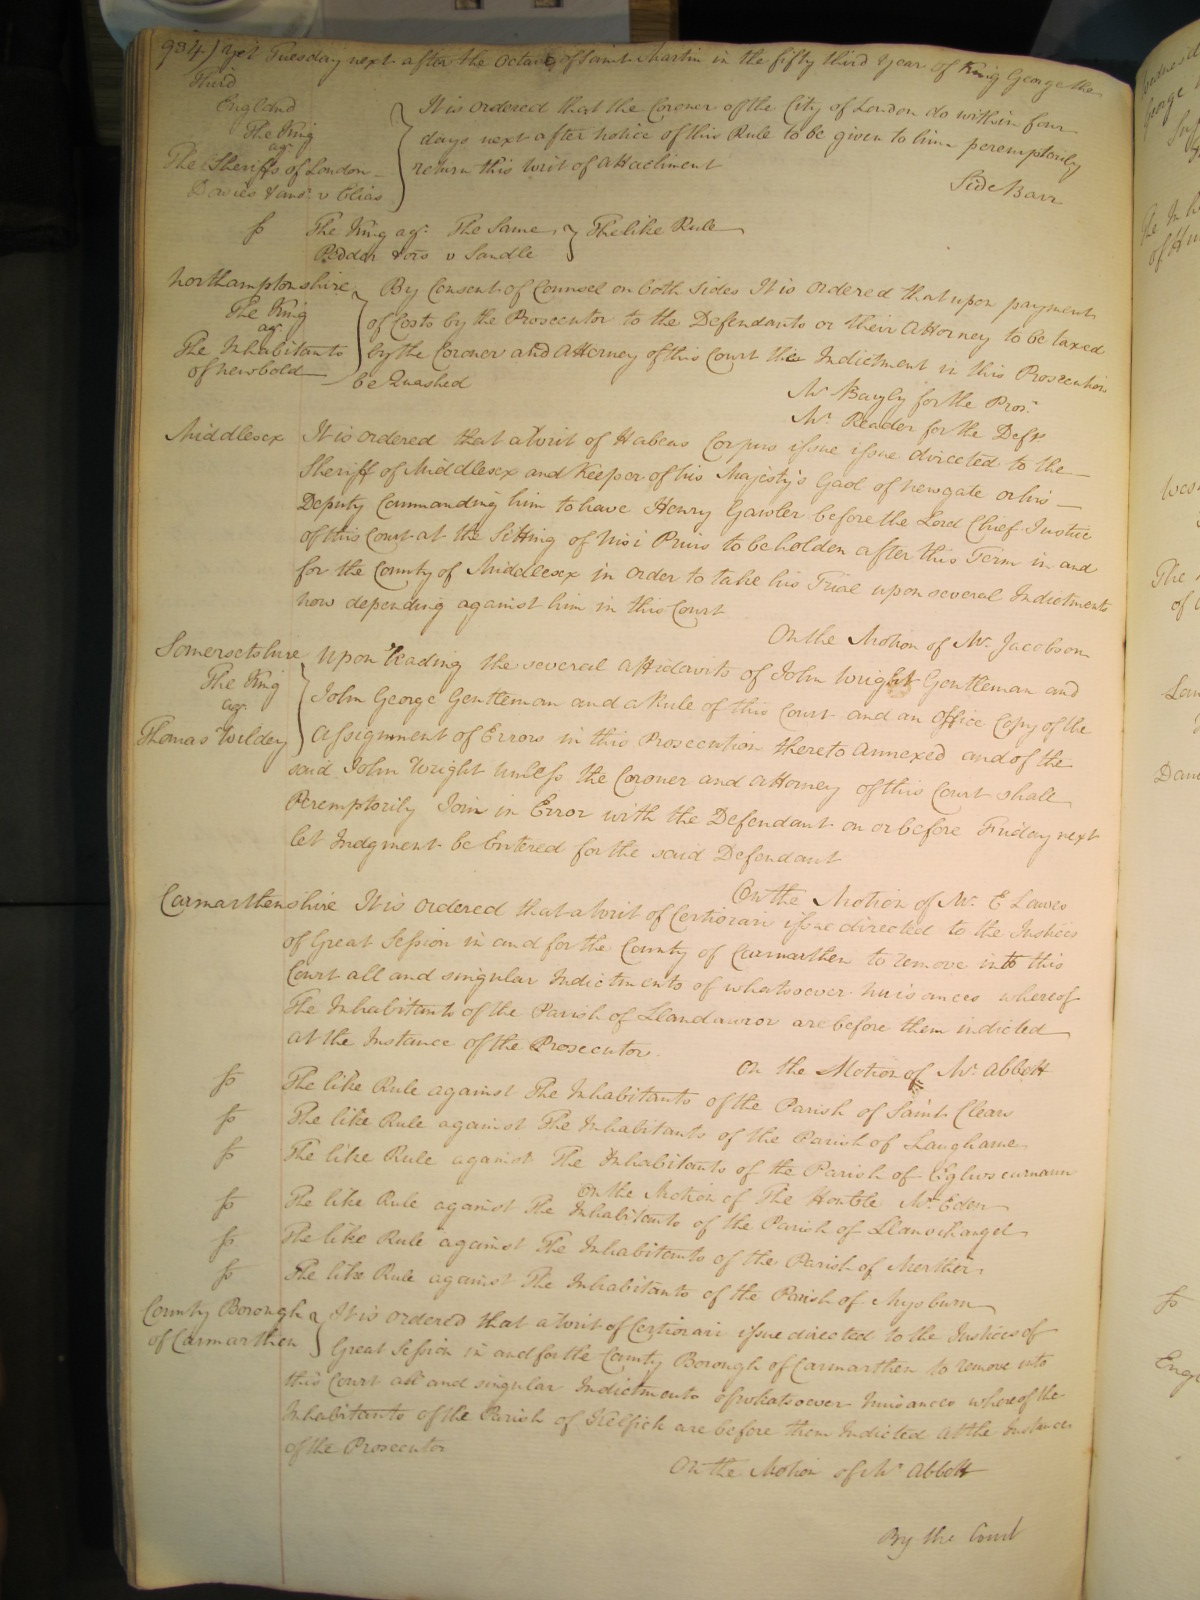 934) Yet Tuesday next after the Octave of Saint Martin in the fifty third Year of King George the
Third
England
The King
agt
The Sheriffs of London
Davies & anr v Elias
It is ordered that the Coroner of the City of London do within four
days next after notice of this Rule to be given to him peremptorily
return this Writ of Attachment
Side Barr
The King agt The Same
Pedder & ors v Sandle
The like Rule
Northamptonshire
The King
agt
The Inhabitants
of Newbold
By Consent of Counsel on both sides It is ordered that upon payment
of Costs by the Prosecutor to the Defendants or their Attorney to be taxed
by the Coroner and Attorney of this Court the Indictment in this Prosecution
be Quashed
Mr Bayly for the Prosr
Mr Reader for the Defts
Middlesex It is ordered that a Writ of Habeas Corpus issue issue directed to the
Sheriff of Middlesex and Keeper of his Majesty's Gaol of Newgate or his
Deputy Commanding him to have Henry Gawler before the Lord Chief Justice
of this Court at the Sitting of Nisi Prius to be holden after this Term in and
for the County of Middlesex in order to take his Trial upon several Indictments
now depending against him in this Court
On the Motion of Mr Jacobson
Somersetshire
The King
agt
Thomas Wilder
Upon reading the several affidavits of John Wright Gentleman and
John George Gentleman and a Rule of this Court and an Office Copy of the
Assignment of Errors in this Prosecution thereto annexed and of the
said John Wright unless the Coroner and Attorney of this Court shall
Peremptorily Join in Error with the Defendant on or before Friday next
let Judgment be Entered for the said Defendant
On the Motion of Mr E Lawes
Carmarthenshire It is ordered that a Writ of Certiorari issue directed to the Justices
of Great Session in and for the County of Carmarthen to remove into this
Court all and singular Indictments of whatsoever nuisances whereof
The Inhabitants of the Parish of Llandawror are before them indicted
at the Instance of the Prosecutor.
On the Motion of Mr Abbott
The like Rule against The Inhabitants of the Parish of Saint Clears
The like Rule against The Inhabitants of the Parish of Laugharne
The like Rule against The Inhabitants of the Parish of
On the Motion of The Honble Mr Eden
The like Rule against The Inhabitants of the Parish of Llanvihangel
The like Rule against The Inhabitants of the Parish of Merthir
The like Rule against The Inhabitants of the Parish of
County Borough
of Carmarthen
It is ordered that a Writ of Certiorari issue directed to the Justices of
Great Session in and for the County Borough of Carmarthen to remove into
this Court all and singular Indictments of whatsoever nuisances whereof the
Inhabitants of the Parish of are before them Indicted at the Instance
of the Prosecutor
On the Motion of Mr Abbott
By the Court